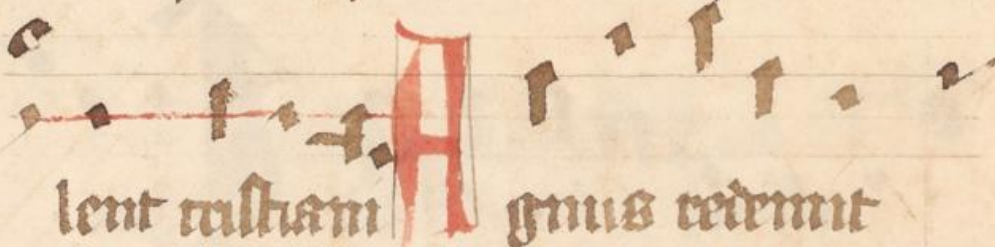 lent cristiani Agnus redemit